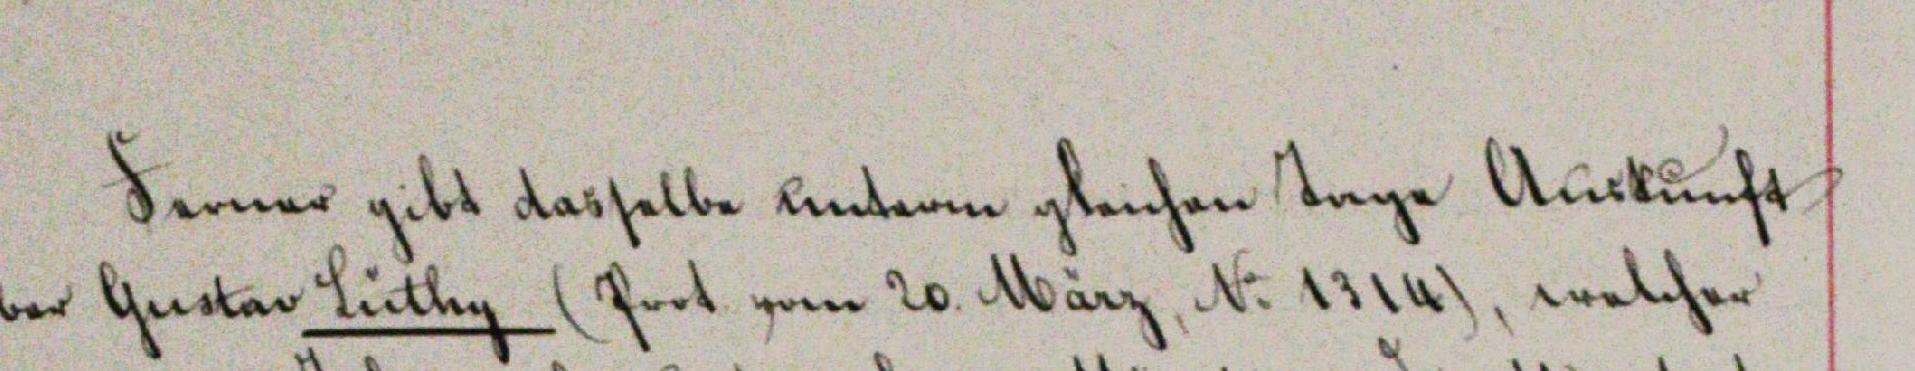 Ferner gibt dasselbe unterm gleichen Tage Auskunft
ber Gustav Lüthy (Prot. vom 20. März, No. 1314), welcher